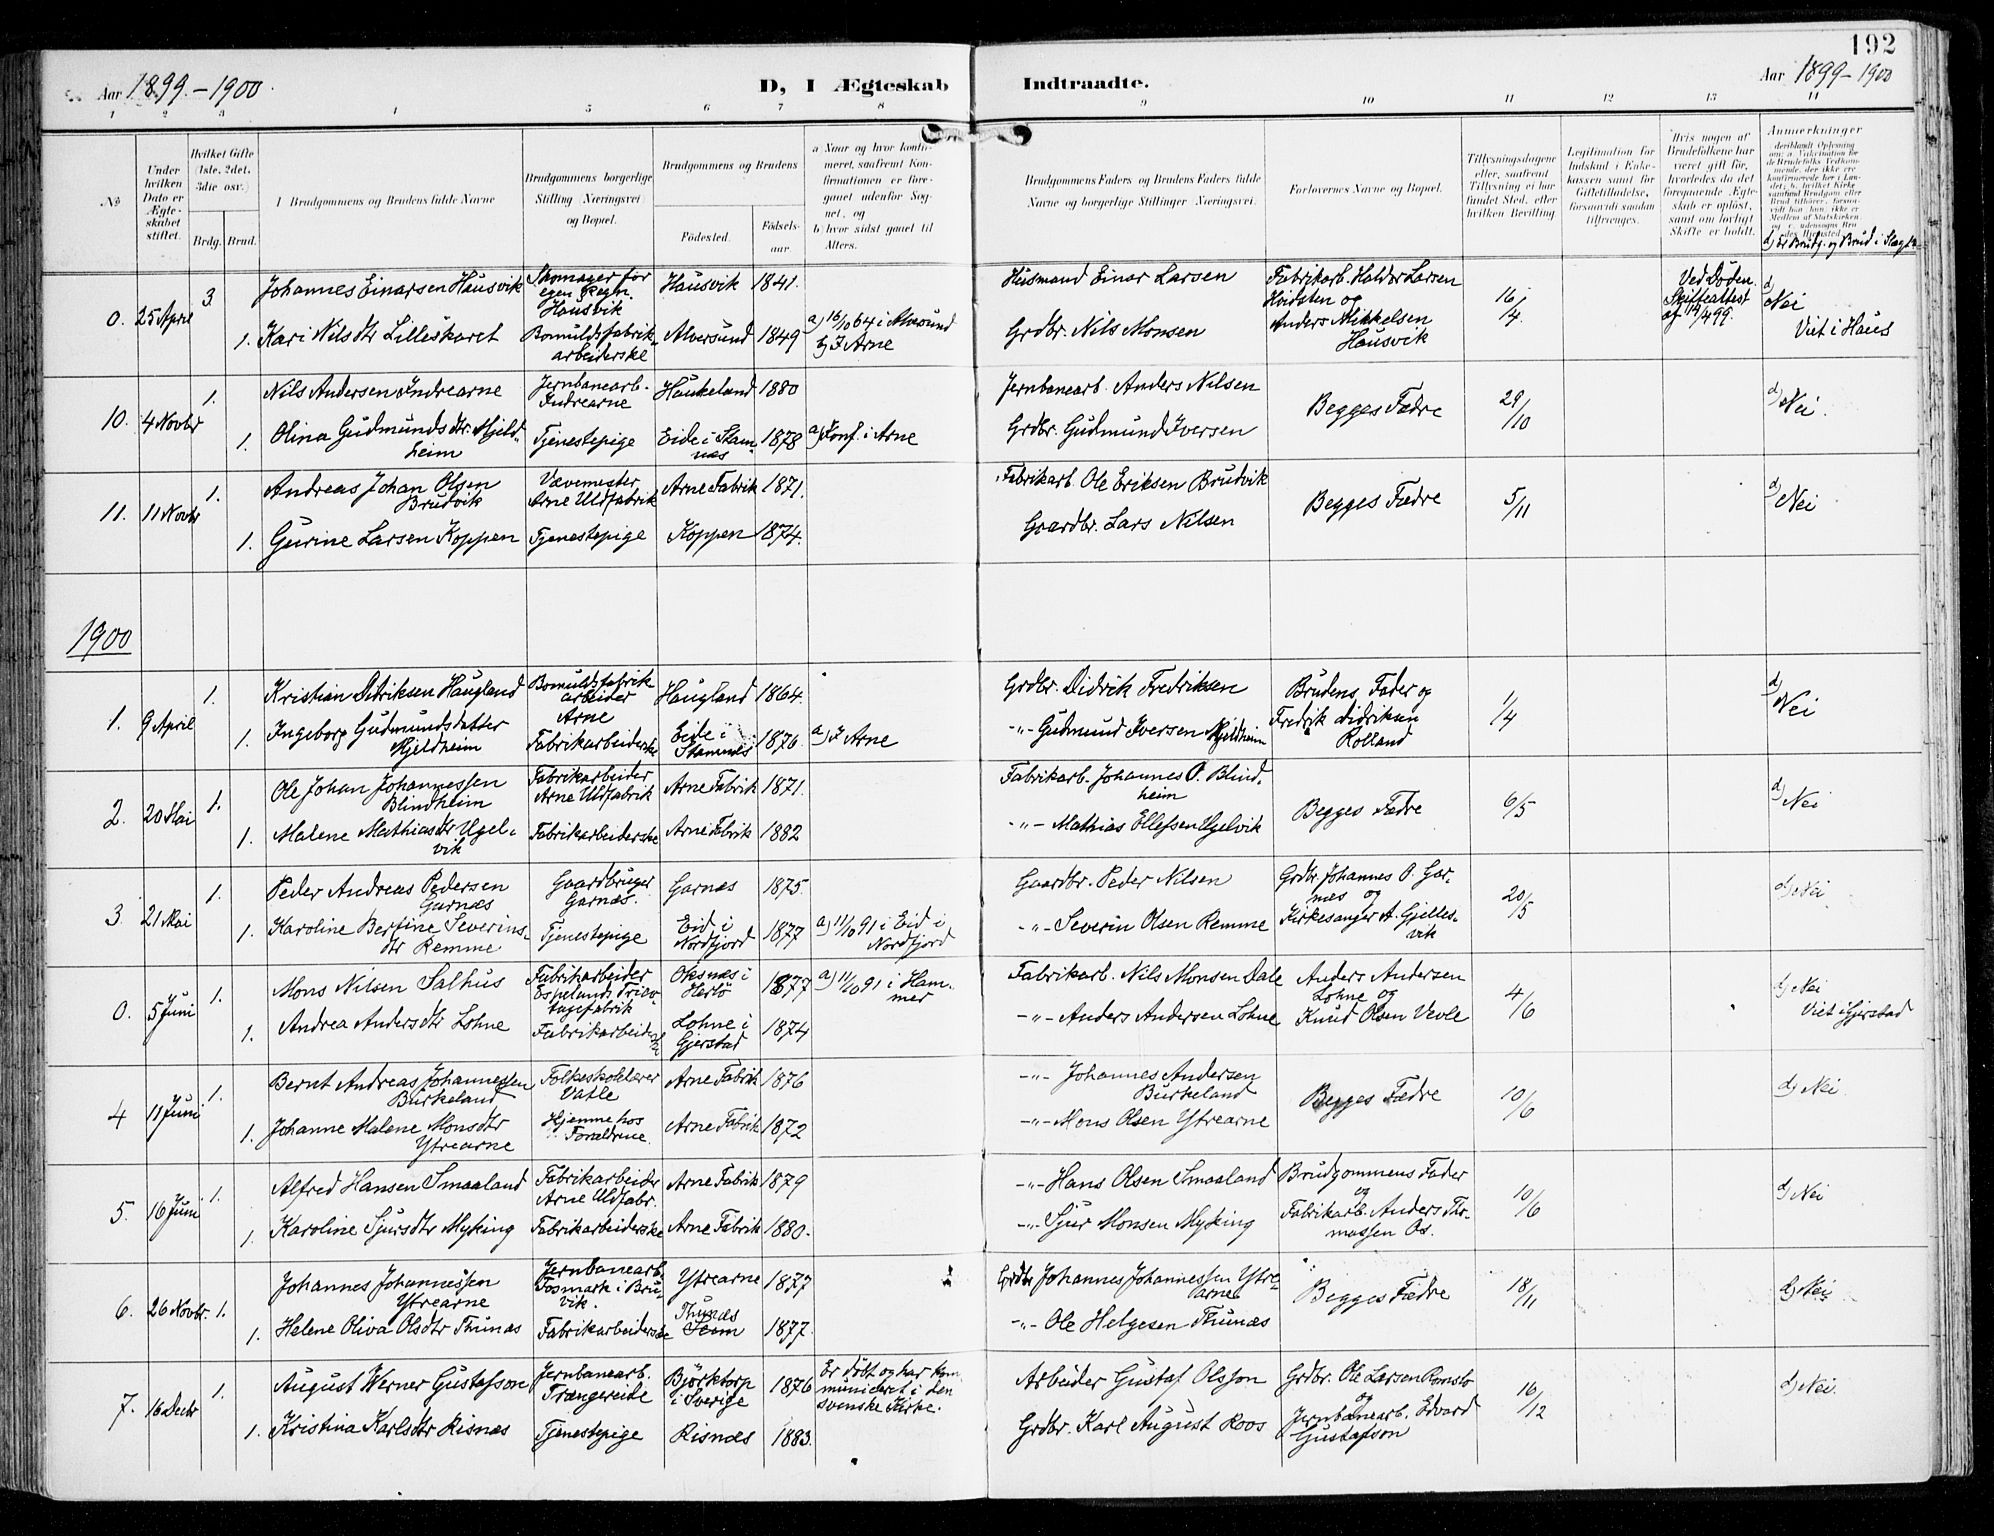 192
Aar 1899.-1900.
D, I Ægteskab Indtraadte.
Aar 1899-1900
1 2 3 4 5 6 7 8 9 10 11 12 13 14
No
Under hvilken Dato er Ægteskabet stiftet.
Hvilket Gifte (1ste, 2det, 3die osv.)
Brdg. Brud.
Brudgommens og Brudens fulde Navne
Brudgommens borgerlige Stilling Næringsvei og Bopæl.
Brudgommens og Brudens
Fødested. Fødselsaar.
a) Naar og hvor konfirmeret, saafremt Konfirmationen er foregaaet udenfor Sognet, og
b) hvor sidst gaaet til Alters.
Brudgommens Faders og Brudens Faders fulde Navne og borgerlige Stillinger Næringsvei.
Forlovernes Navne og Bopæl.
Tillysningsdagene eller, saafremt Tillysning ei har fundet Sted, efter hvilken Bevilling
Legitimation for Indskud i Enkekassen samt for Giftetilladelse, forsaavidt saadan tiltrænges.
Hvis nogen af Brudefolkene har været gift før, hvorledes da det foregaaende Ægteskab er opløst, samt om lovligt Skifte er holdt.
Anmerkninger
d) Er Brudg. og Brud i Slægt?
0. 25 April 3 Johannes Einarsen Hausvik Skomager for egen Regn. Hausvik Hausvik 1841. Husmand Einar Larsen Fabrikarb. Haldor Larsen Hvidsten og Anders Mikkelsen Hausvik 16/4. Ved Døden. Skifteattest af 14/4 99. d) Nei Viet i Haus
1. Kari Nilsdtr Lilleskaret Bomuldsfabrikarbeiderske Alversund 1849 a) 16/10 64 i Alversund b) I Arne Grdbr. Nils Monsen
10. 4 Novbr 1. Nils Andersen Indrearne Jernbanearb. Indrearne Haukeland 1880 Jernbanearb. Anders Nilsen Begges Fædre 29/10 d) Nei.
1. Olina Gudmundsdtr Mjeldheim Tjenestepige Eide i Stamnæs 1878 a) Konf. i Arne Grdbr. Gudmund Iversen
11. 11 Novbr 1. Andreas Johan Olsen Brudvik Vævemester Arne Uldfabrik Arne Fabrik 1871. Fabrikarb. Ole Eriksen Brudvik Begges Fædre 5/11 d) Nei
1. Gurine Larsen Koppen Tjenestepige Koppen 1874. Gaardbr. Lars Nilsen
1900
1. 9 April 1. Kristian Didriksen Haugland Bomuldsfabrikarbeider Arne Haugland 1864. Grdbr. Didrik Fredriksen Brudens Fader og Fredrik Didriksen Rolland 1/4 d) Nei
1. Ingeborg Gudmundsdatter Mjeldheim Fabrikarbeiderske Eide i Stamnes 1876. a) I Arne -"- Gudmund Iversen Mjeldheim
2. 20 Mai 1. Ole Johan Johannessen Blindheim Fabrikarbeider Arne Uldfabrik Arne Fabrik 1871. Fabrikarb. Johannes O. Blindheim Begges Fædre 6/5 d) Nei
1. Malene Mathiasdtr Ugelvik Fabrikarbeiderske Arne Fabrik 1882 -"- Mathias Ellefsen Ugelvik
3. 21 Mai 1. Peder Andreas Pedersen Garnæs Gaardbruger Garnæs. Garnæs 1875. Gaardbr. Peder Nilsen Grdbr. Johannes O. Garnæs og Kirkesanger A. Gjellesvik 20/5 d) Nei
1. Karoline Bertine Severinsdtr Remme Tjenestepige Eid i Nordfjord 1877 a) 11/10 91 i Eid i Nordfjord -"- Severin Olsen Remme
0. 5 Juni 1. Mons Nilsen Salhus Fabrikarbeider Espelands Tricotagefabrik Oksnæs i Herlø 1877 a) 11/10 91 i Hammer Fabrikarb. Nils Monsen Dale Anders Andersen Lohne og Knud Olsen Vevle 4/6 d) Nei Viet i Gjerstad
1. Andrea Andersdtr Lohne Fabrikarbeiderske Lohne i Gjerstad 1874 -"- Anders Andersen Lohne
4 11 Juni 1. Bernt Andreas Johannessen Burkeland Folkeskolelærer Vatle Arne Fabrik 1876 -"- Johannes Andersen Burkeland Begges Fædre 10/6 d) Nei
1. Johanne Malene Monsdtr Ytrearne Hjemme hos Forældrene. Arne Fabrik 1872 -"- Mons Olsen Ytrearne
5. 16 Juni 1. Alfred Hansen Smaaland Fabrikarbeider Arne Uldfabr. Arne Fabrik 1879 -"- Hans Olsen Smaaland Brudgommens Fader og Fabrikarb. Anders Thomassen Os. 10/6 d) Nei
1. Karoline Sjursdtr Myking Fabrikarbeiderske Arne Fabrik 1880. -"- Sjur Monsen Myking
6. 26 Novbr. 1. Johannes Johannessen Ytrearne Jernbanearb. Fosmark i Bruvik. Ytrearne 1877 Grdbr Johannes Johannessen Ytrearne Begges Fædre 18/11 d) Nei
1. Helene Oliva Olsdtr Thunæs Fabrikarbeiderske Thunæs Seim 1877. -"- Ole Helgesen Thunæs
7. 16 Decbr 1. August Werner Gustafson Jernbanearb. Trængereide Björktorp i Sverige 1876 Er døbt og har kommuniceret i den svenske Kirke. Arbeider Gustaf Olsson Grdbr. Ole Larsen Romslo og Jernbanearb. Edvard Gustafson 16/12 d) Nei.
1. Kristina Karlsdtr Risnæs Tjenestepige Risnæs 1883. Grdbr. Karl August Roos